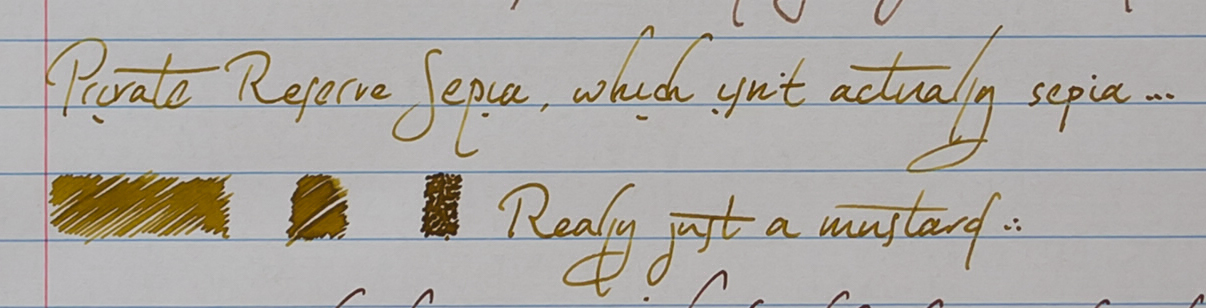 Private Reserve Sepia, which isn't actually sepia...
Really just a mustard ∴